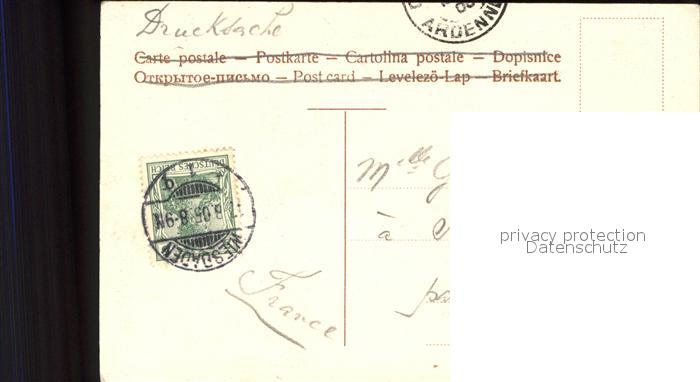 Drucksache
ARDENNE
Carte postale — Postkarte — Cartolina postale — Dopisnice
Открытое-письмо — Post card — Levelező-Lap — Briefkaart.
DEUTSCHES REICH
WIESBADEN
.05.8-9N
Mlle G
à
France
privacy protection
Datenschutz